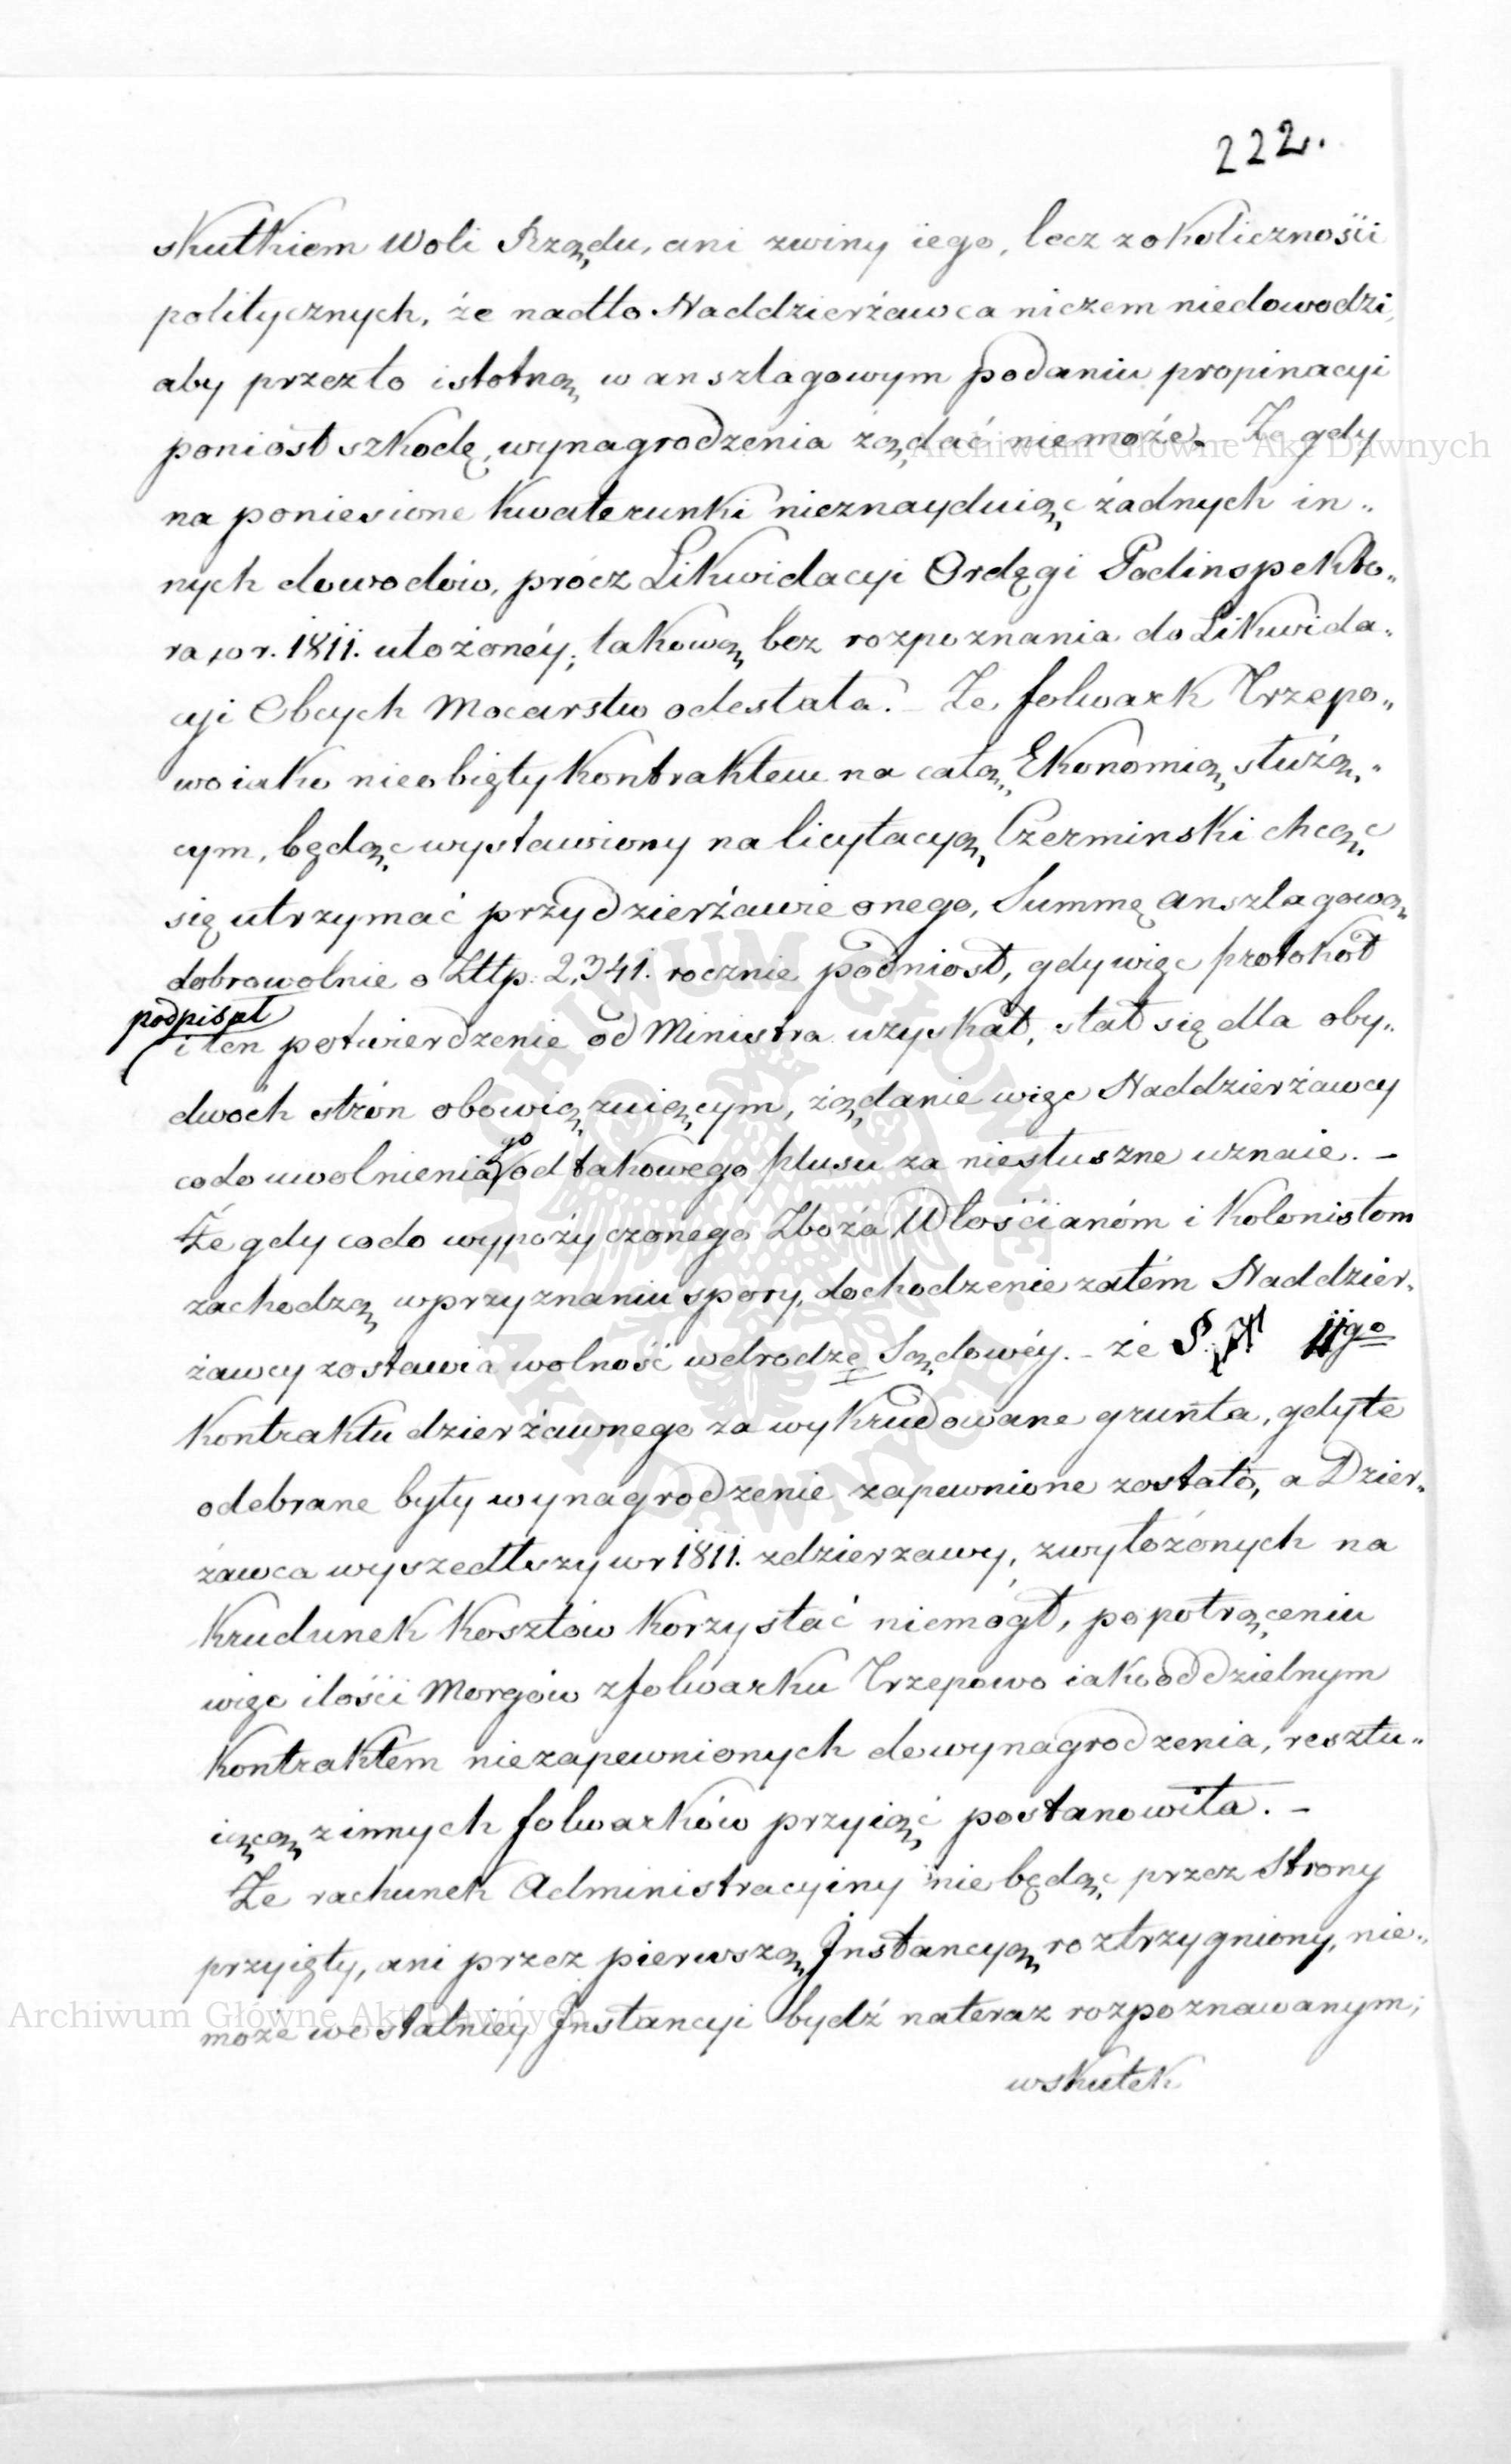 222.
skutkiem Woli Rządu, ani zwiny iego, lecz zokoliczności
politycznych, że nadto Naddzierżawca niczem niedowodzi,
aby przezto istotną w anszlagowym podaniu propinacyi
poniósł szkodę, wynagrodzenia żądać niemoże. Że gdy
na poniesione kwaterunki nieznayduiąc żadnych in„
nych dowodów, prócz Likwidacyi Ordęgi Podinspekto„
ra w r. 1811. ułożonéy; takową bez rozpoznania do Likwida„
cyi Obcych Mocarstw odesłała. – Że folwark Trzepo„
wo iako nieobięty kontraktem na całą Ekonomią służą„
cym, będąc wystawiony na licytacyą Czerminski chcąc
się utrzymać przy dzierżawie onego, Summę anszlagową
dobrowolnie o Złtp. 2,341. rocznie podniósł, gdy więc protokół
podpisał
i ten potwierdzenie od Ministra uzyskał, stał się dla oby„
dwóch strón obowiązuiącym, żądanie więc Naddzierżawcy
codo uwolnienia go od takowego plusu za niesłuszne uznaie. –
Że gdy codo wypożyczonego Zboża Włościanóm i Kolonistom
zachodzą w przyznaniu spory, dochodzenie zatém Naddzier„
żawcy zostawia wolność w drodze Sądowéy. – że §. 11go
Kontraktu dzierżawnego za wykrudowane grunta, gdy te
odebrane były wynagrodzenie zapewnione zostało, a Dzier„
żawca wyszedłszy w r 1811. zdzierzawy, zwyłożónych na
Krudunek Kosztów korzystać niemógł, po potrąceniu
więc ilości Morgów zfolwarku Trzepowo iako oddzielnym
Kontraktem niezapewnionych do wynagrodzenia, resztu„
iącą z innych folwarków przyiąć postanowiła. –
Że rachunek Administracyiny nie będąc przez Strony
przyięty, ani przez pierwszą Jnstancyą roztrzygniony, nie„
może w ostatniéy Jnstancyi bydź nateraz rozpoznawanym;
wskutek
Archiwum Główne Akt Dawnych
Archiwum Główne Akt Dawnych
ARCHIWUM GŁÓWNE AKT DAWNYCH